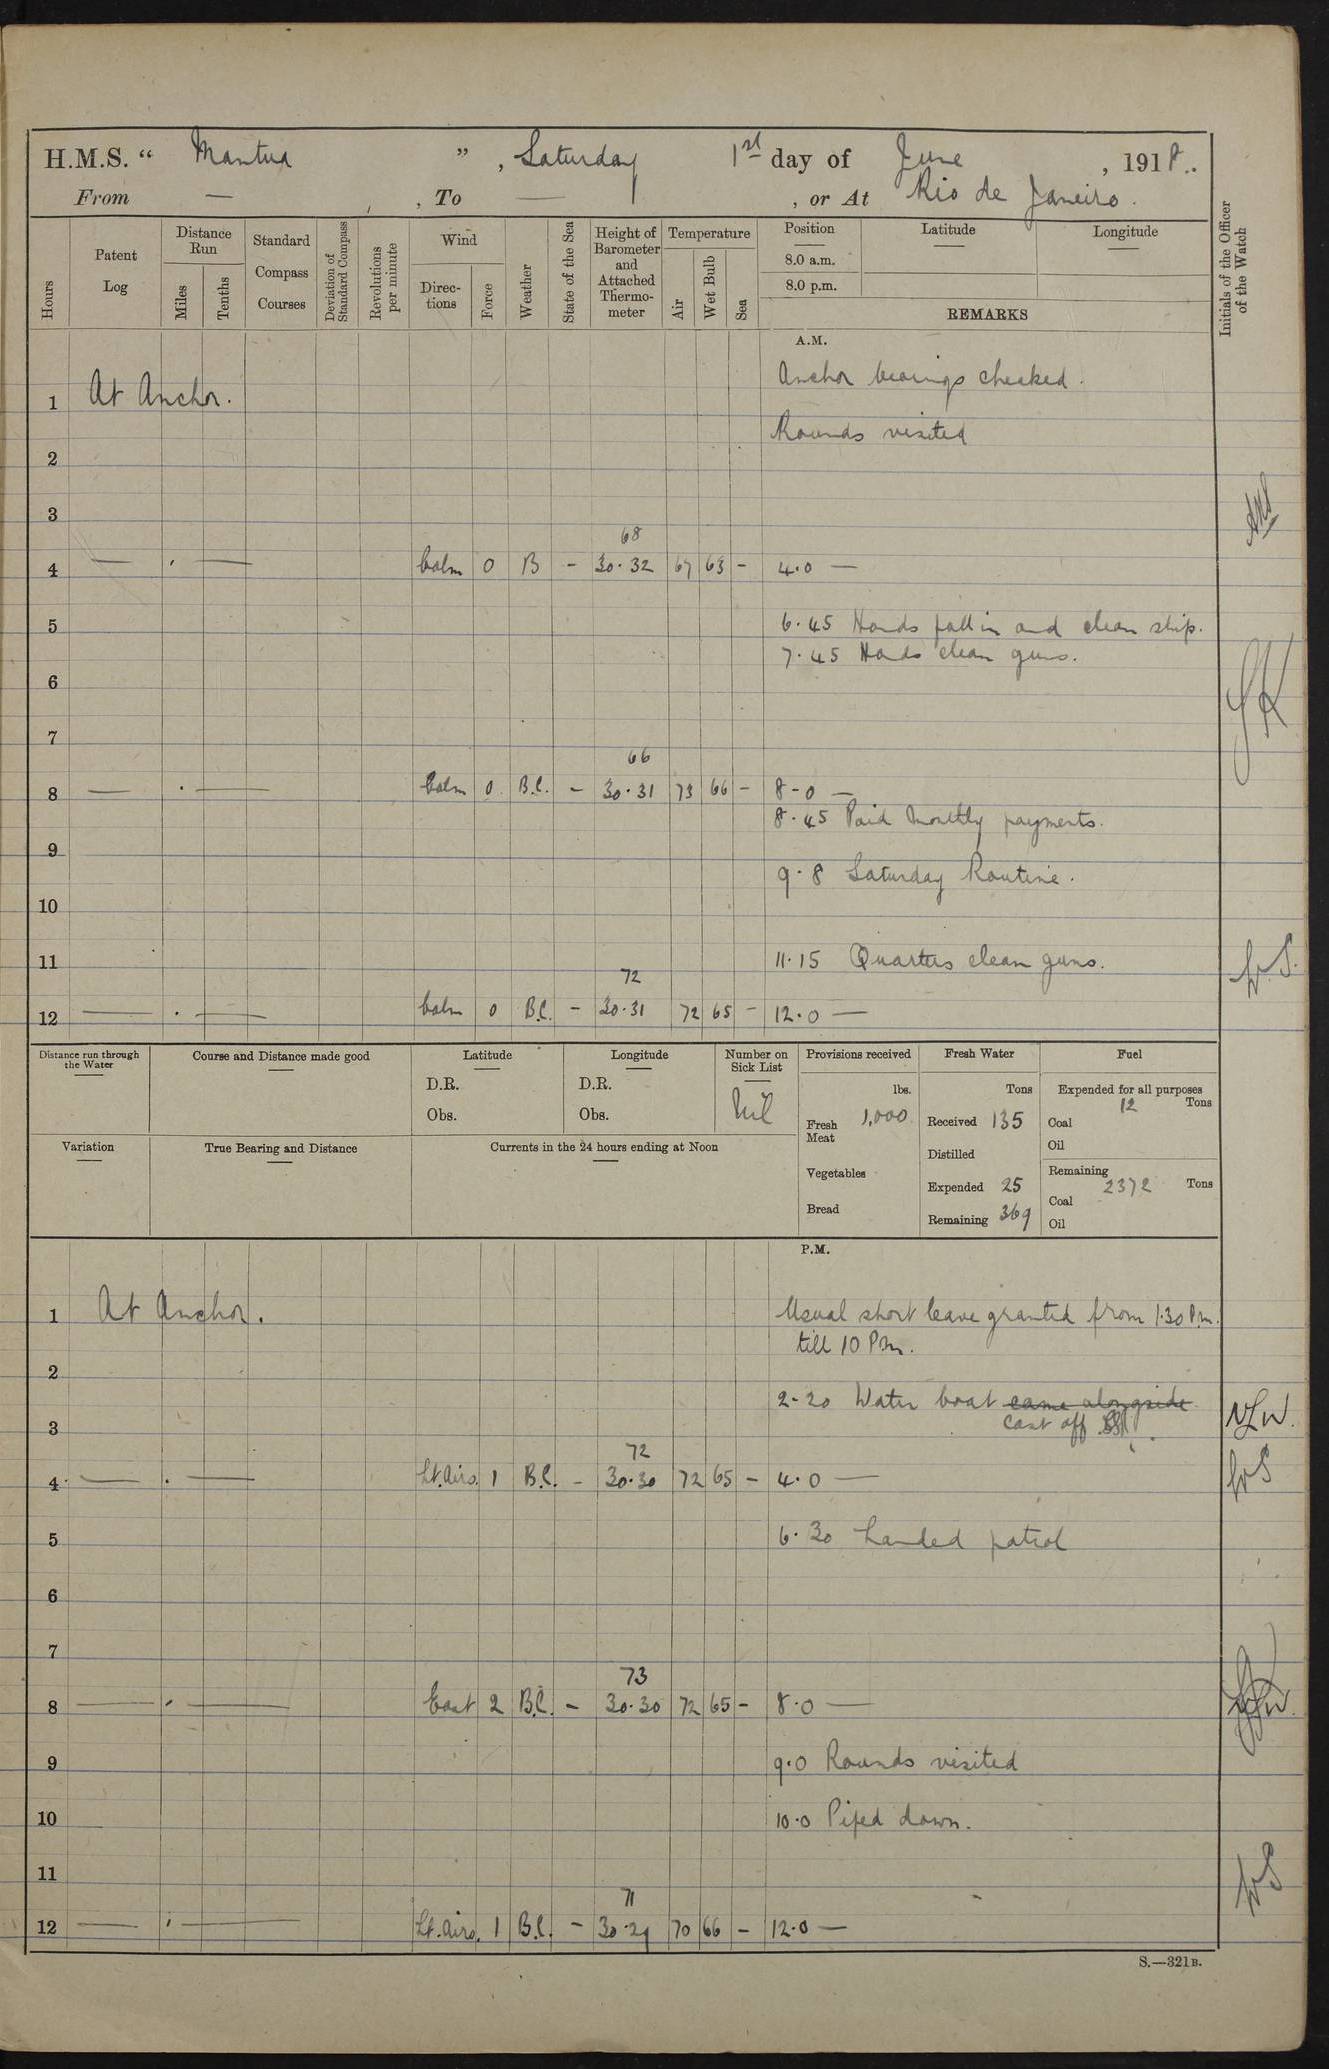 H.M.S. “ Mantua ” , Saturday 1st day of June , 1918.
From — , , To — , or At Rio de Janeiro.
Hours
Patent Log
Distance Run
Miles
Tenths
Standard Compass Courses
Deviation of Standard Compass
Revolutions per minute
Wind
Direc-tions
Force
Weather
State of the Sea
Height of Barometer and Attached Thermo-meter
Temperature
Air
Wet Bulb
Sea
Position
8.0 a.m.
8.0 p.m.
Latitude
Longitude
REMARKS
Initials of the Officer of the Watch
A.M.
Anchor bearings checked.
1 At Anchor.
Rounds visited
2
3
68
4 — . — Calm 0 B - 30.32 67 63 - 4.0 —
5 6.45 Hands fall in and clean ship.
7.45 Hands clean guns.
6
SK
7
66
8 — . — Calm 0 B.C. - 30.31 73 66 - 8-0 —
8.45 Paid Monthly payments.
9
9.8 Saturday Routine.
10
11 11.15 Quarters clean guns. WS.
72
12 — . — Calm 0 B.C. - 30.31 72 65 - 12.0 —
Distance run through the Water
Course and Distance made good
Latitude
D.R.
Obs.
Longitude
D.R.
Obs.
Number on Sick List
Nil
Provisions received
lbs.
Fresh Meat 1,000
Vegetables
Bread
Fresh Water
Tons
Received 135
Distilled
Expended 25
Remaining 369
Fuel
Expended for all purposes
12 Tons
Coal
Oil
Remaining
2372 Tons
Coal
Oil
Variation
True Bearing and Distance
Currents in the 24 hours ending at Noon
P.M.
1 At Anchor. Usual short leave granted from 1.30 P.m.
till 10 P.m.
2
2-20 Water boat came alongside
3 cast off NLW.
72
4 — . — Lt. Airs. 1 B.C. - 30.30 72 65 - 4.0 — WS
5 6.30 Landed patrol
6
7
73
8 — . — East 2 B.C. - 30.30 72 65 - 8.0 —
9 9.0 Rounds visited
10 10.0 Piped down.
11
WS
71
12 — . — Lt. Airs. 1 B.C. - 30.29 70 66 - 12.0 —
S.—321B.